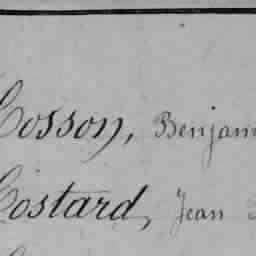 Cosson, Benjam
Costard, Jean